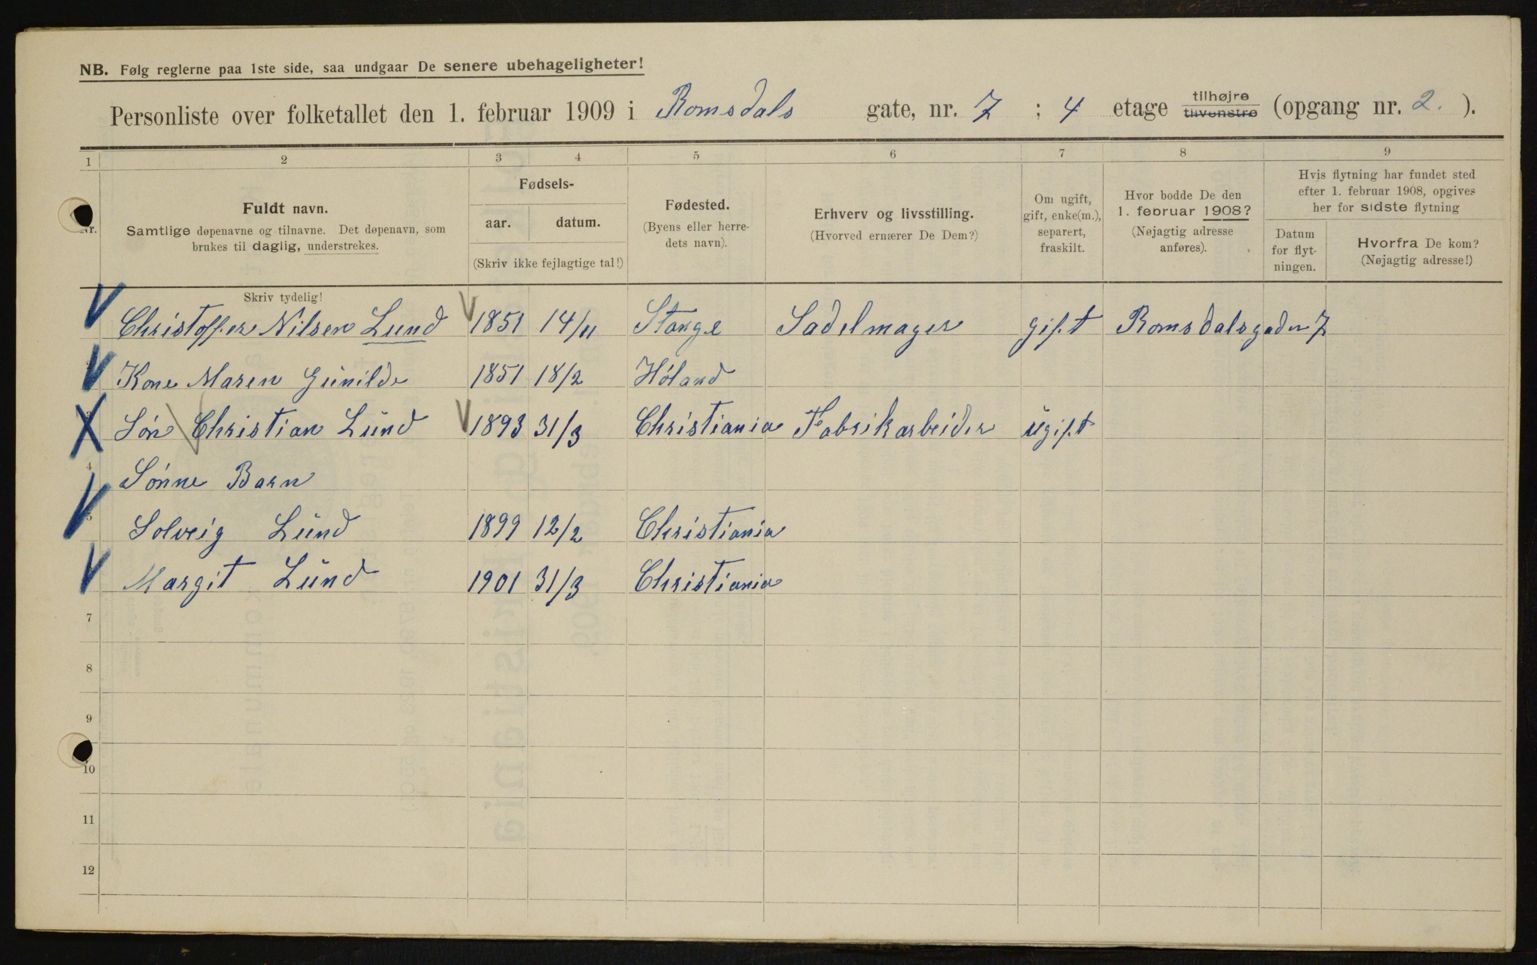 NB. Følg reglerne paa 1ste side, saa undgaar De senere ubehageligheter!
Personliste over folketallet den 1. februar 1909 i Romsdals gate, nr. 7 ; 4 etage tilhøjre tilvenstre (opgang nr. 2. ).
1 2 3 4 5 6 7 8 9
Nr.
Fuldt navn.
Samtlige døpenavne og tilnavne. Det døpenavn, som
brukes til daglig, understrekes.
Skriv tydelig!
Fødsels-
aar. datum.
(Skriv ikke fejlagtige tal!)
Fødested.
(Byens eller herre-
dets navn).
Erhverv og livsstilling.
(Hvorved ernærer De Dem?)
Om ugift,
gift, enke(m.),
separert,
fraskilt.
Hvor bodde De den
1. februar 1908?
(Nøjagtig adresse
anføres).
Hvis flytning har fundet sted
efter 1. februar 1908, opgives
her for sidste flytning
Datum
for flyt-
ningen.
Hvorfra De kom?
(Nøjagtig adresse!)
Christoffer Nilsen Lund 1851 14/11 Stange Sadelmager gift Romsdalsgaden 7
Kone Maren Gunilde 1851 18/2 Høland
Søn Christian Lund 1893 31/3 Christiania Fabrikarbeider ugift
4 Sønne Barn
5 Solveig Lund 1899 12/2 Christiania
Margit Lund 1901 31/3 Christiania
7
8
9
10
11
12